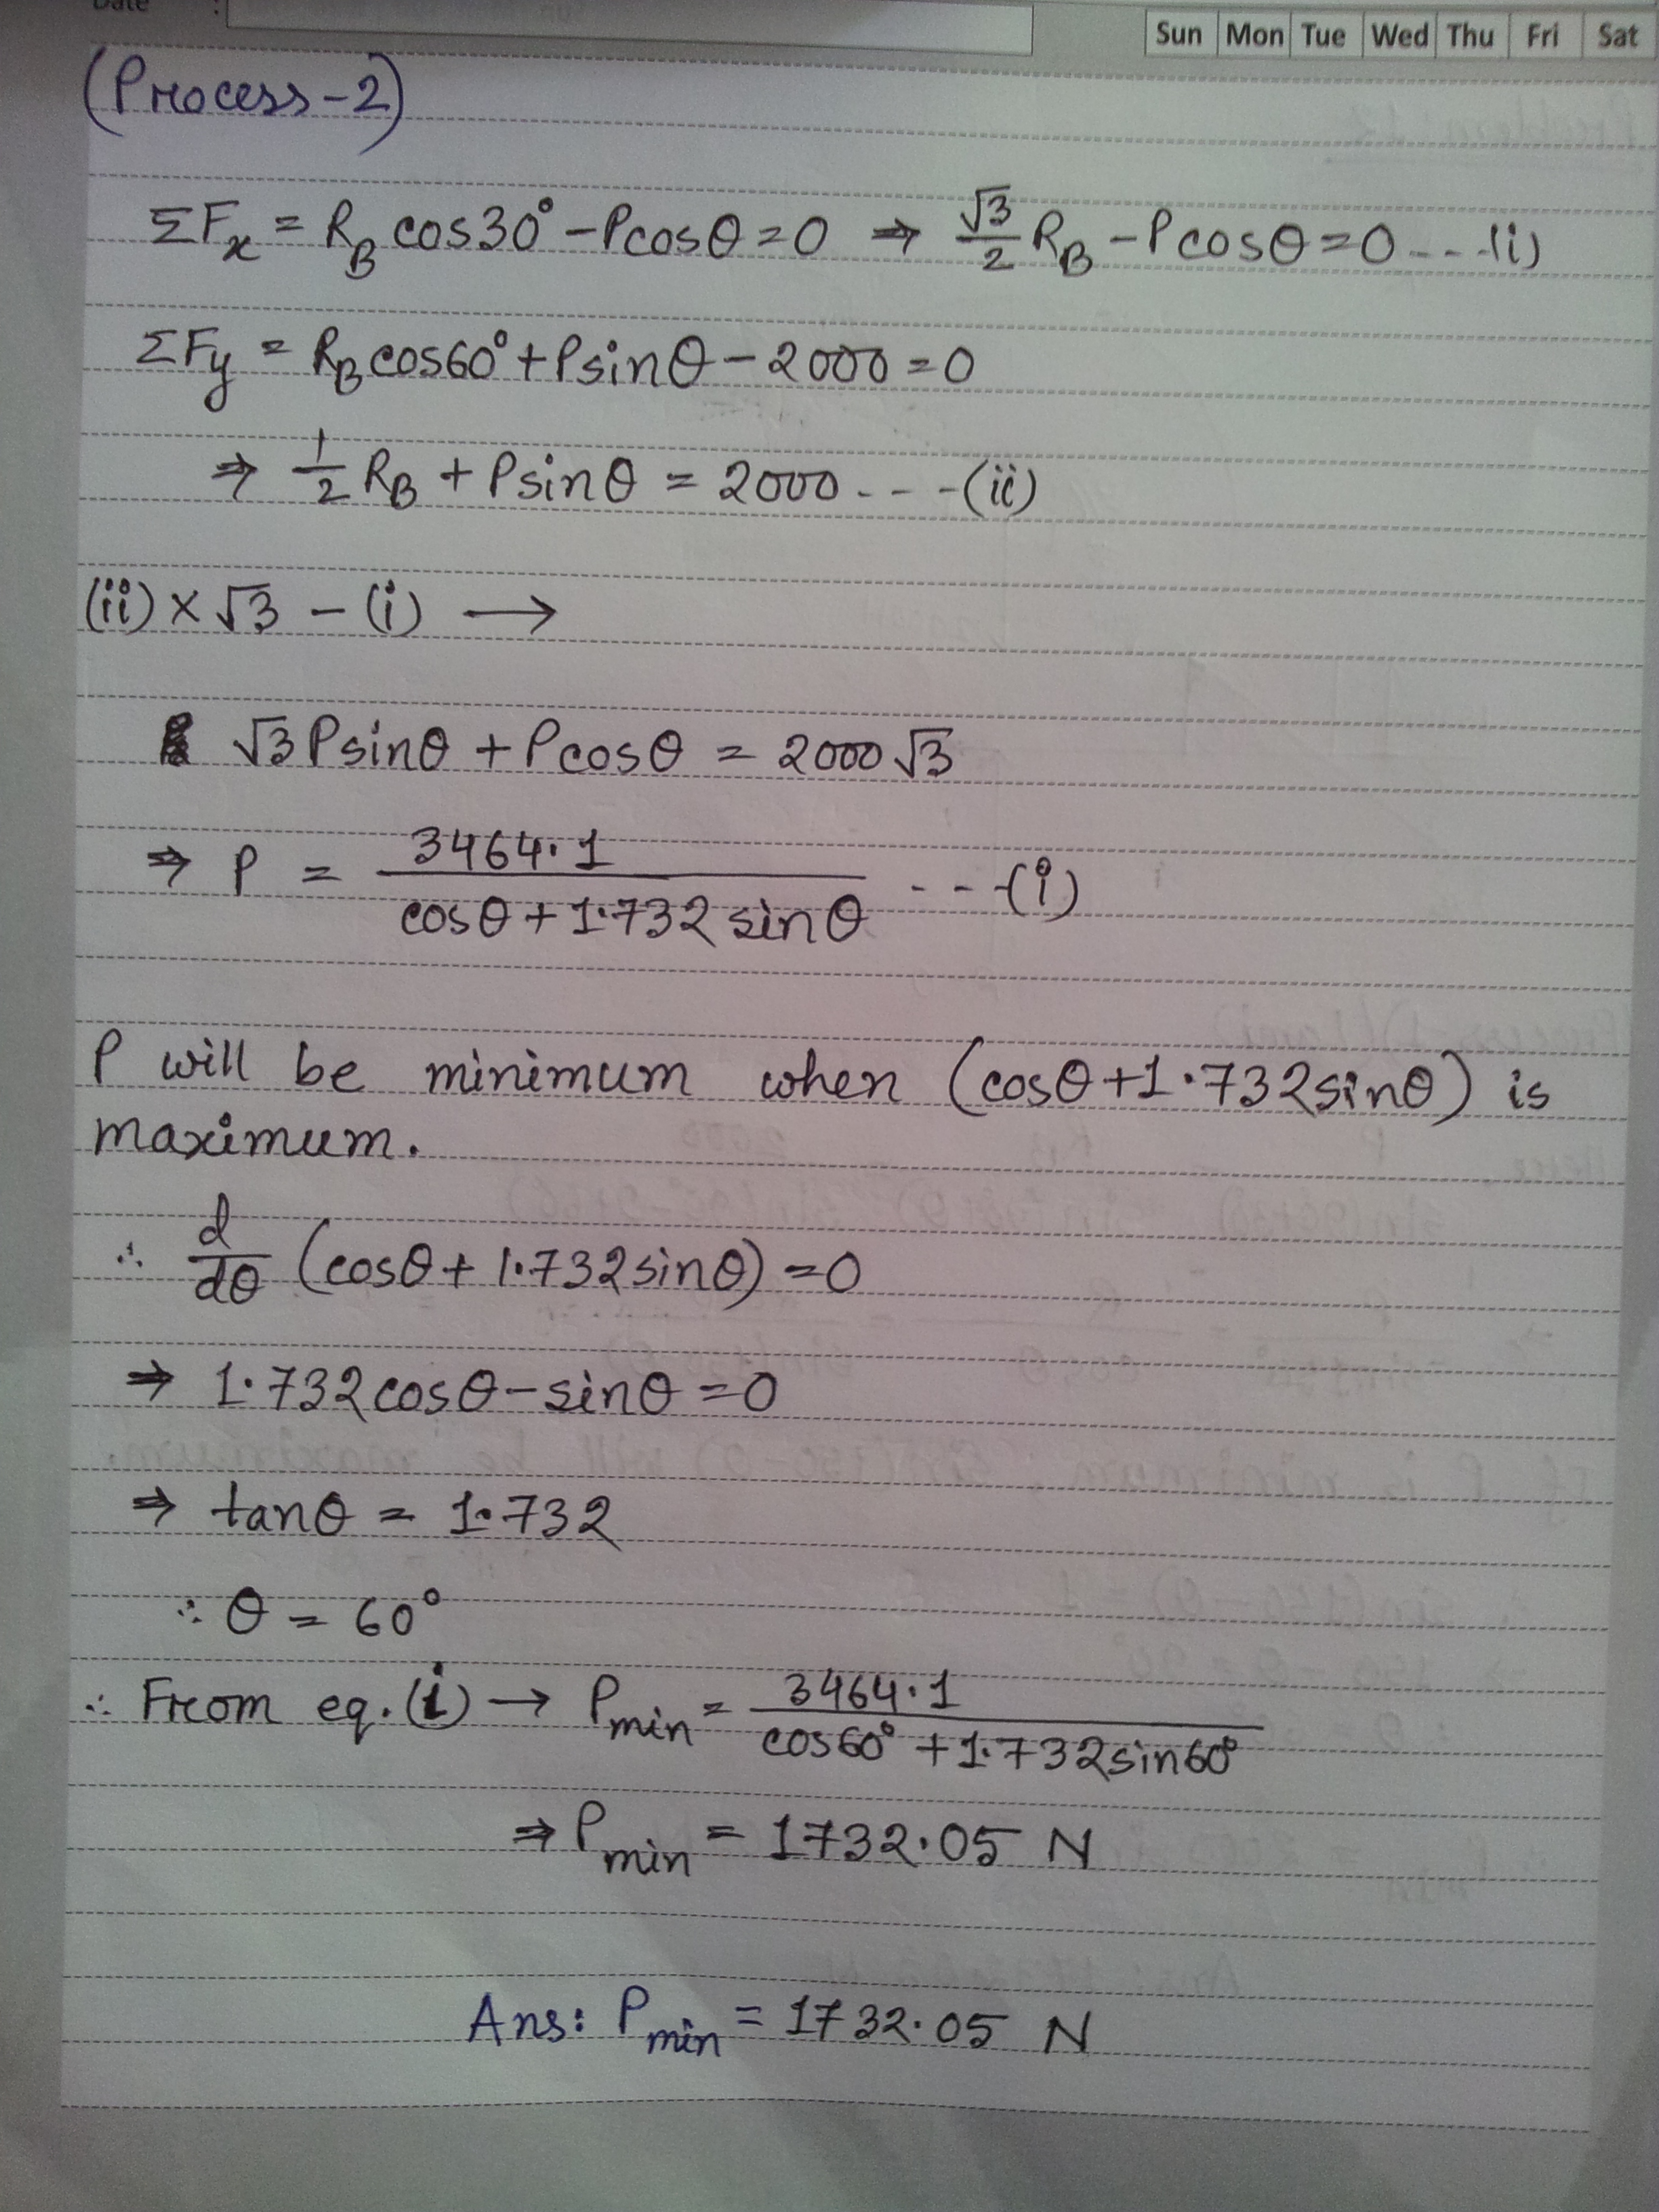 Date :
Sun Mon Tue Wed Thu Fri Sat
(Process-2)
ΣFx = R_B cos30° - Pcosθ = 0 ⇒ √3/2 R_B - Pcosθ = 0 ----(i)
ΣFy = R_B cos60° + Psinθ - 2000 = 0
⇒ 1/2 R_B + Psinθ = 2000 - - - -(ii)
(ii) × √3 - (i) →
√3 Psinθ + Pcosθ = 2000√3
⇒ P = 3464.1 / cosθ + 1.732 sinθ - - - -(i)
P will be minimum when (cosθ + 1.732sinθ) is
maximum.
∴ d/dθ (cosθ + 1.732sinθ) = 0
⇒ 1.732cosθ - sinθ = 0
⇒ tanθ = 1.732
∴ θ = 60°
∴ From eq. (i) → Pmin = 3464.1 / cos60° + 1.732sin60°
⇒ Pmin = 1732.05 N
Ans: Pmin = 1732.05 N